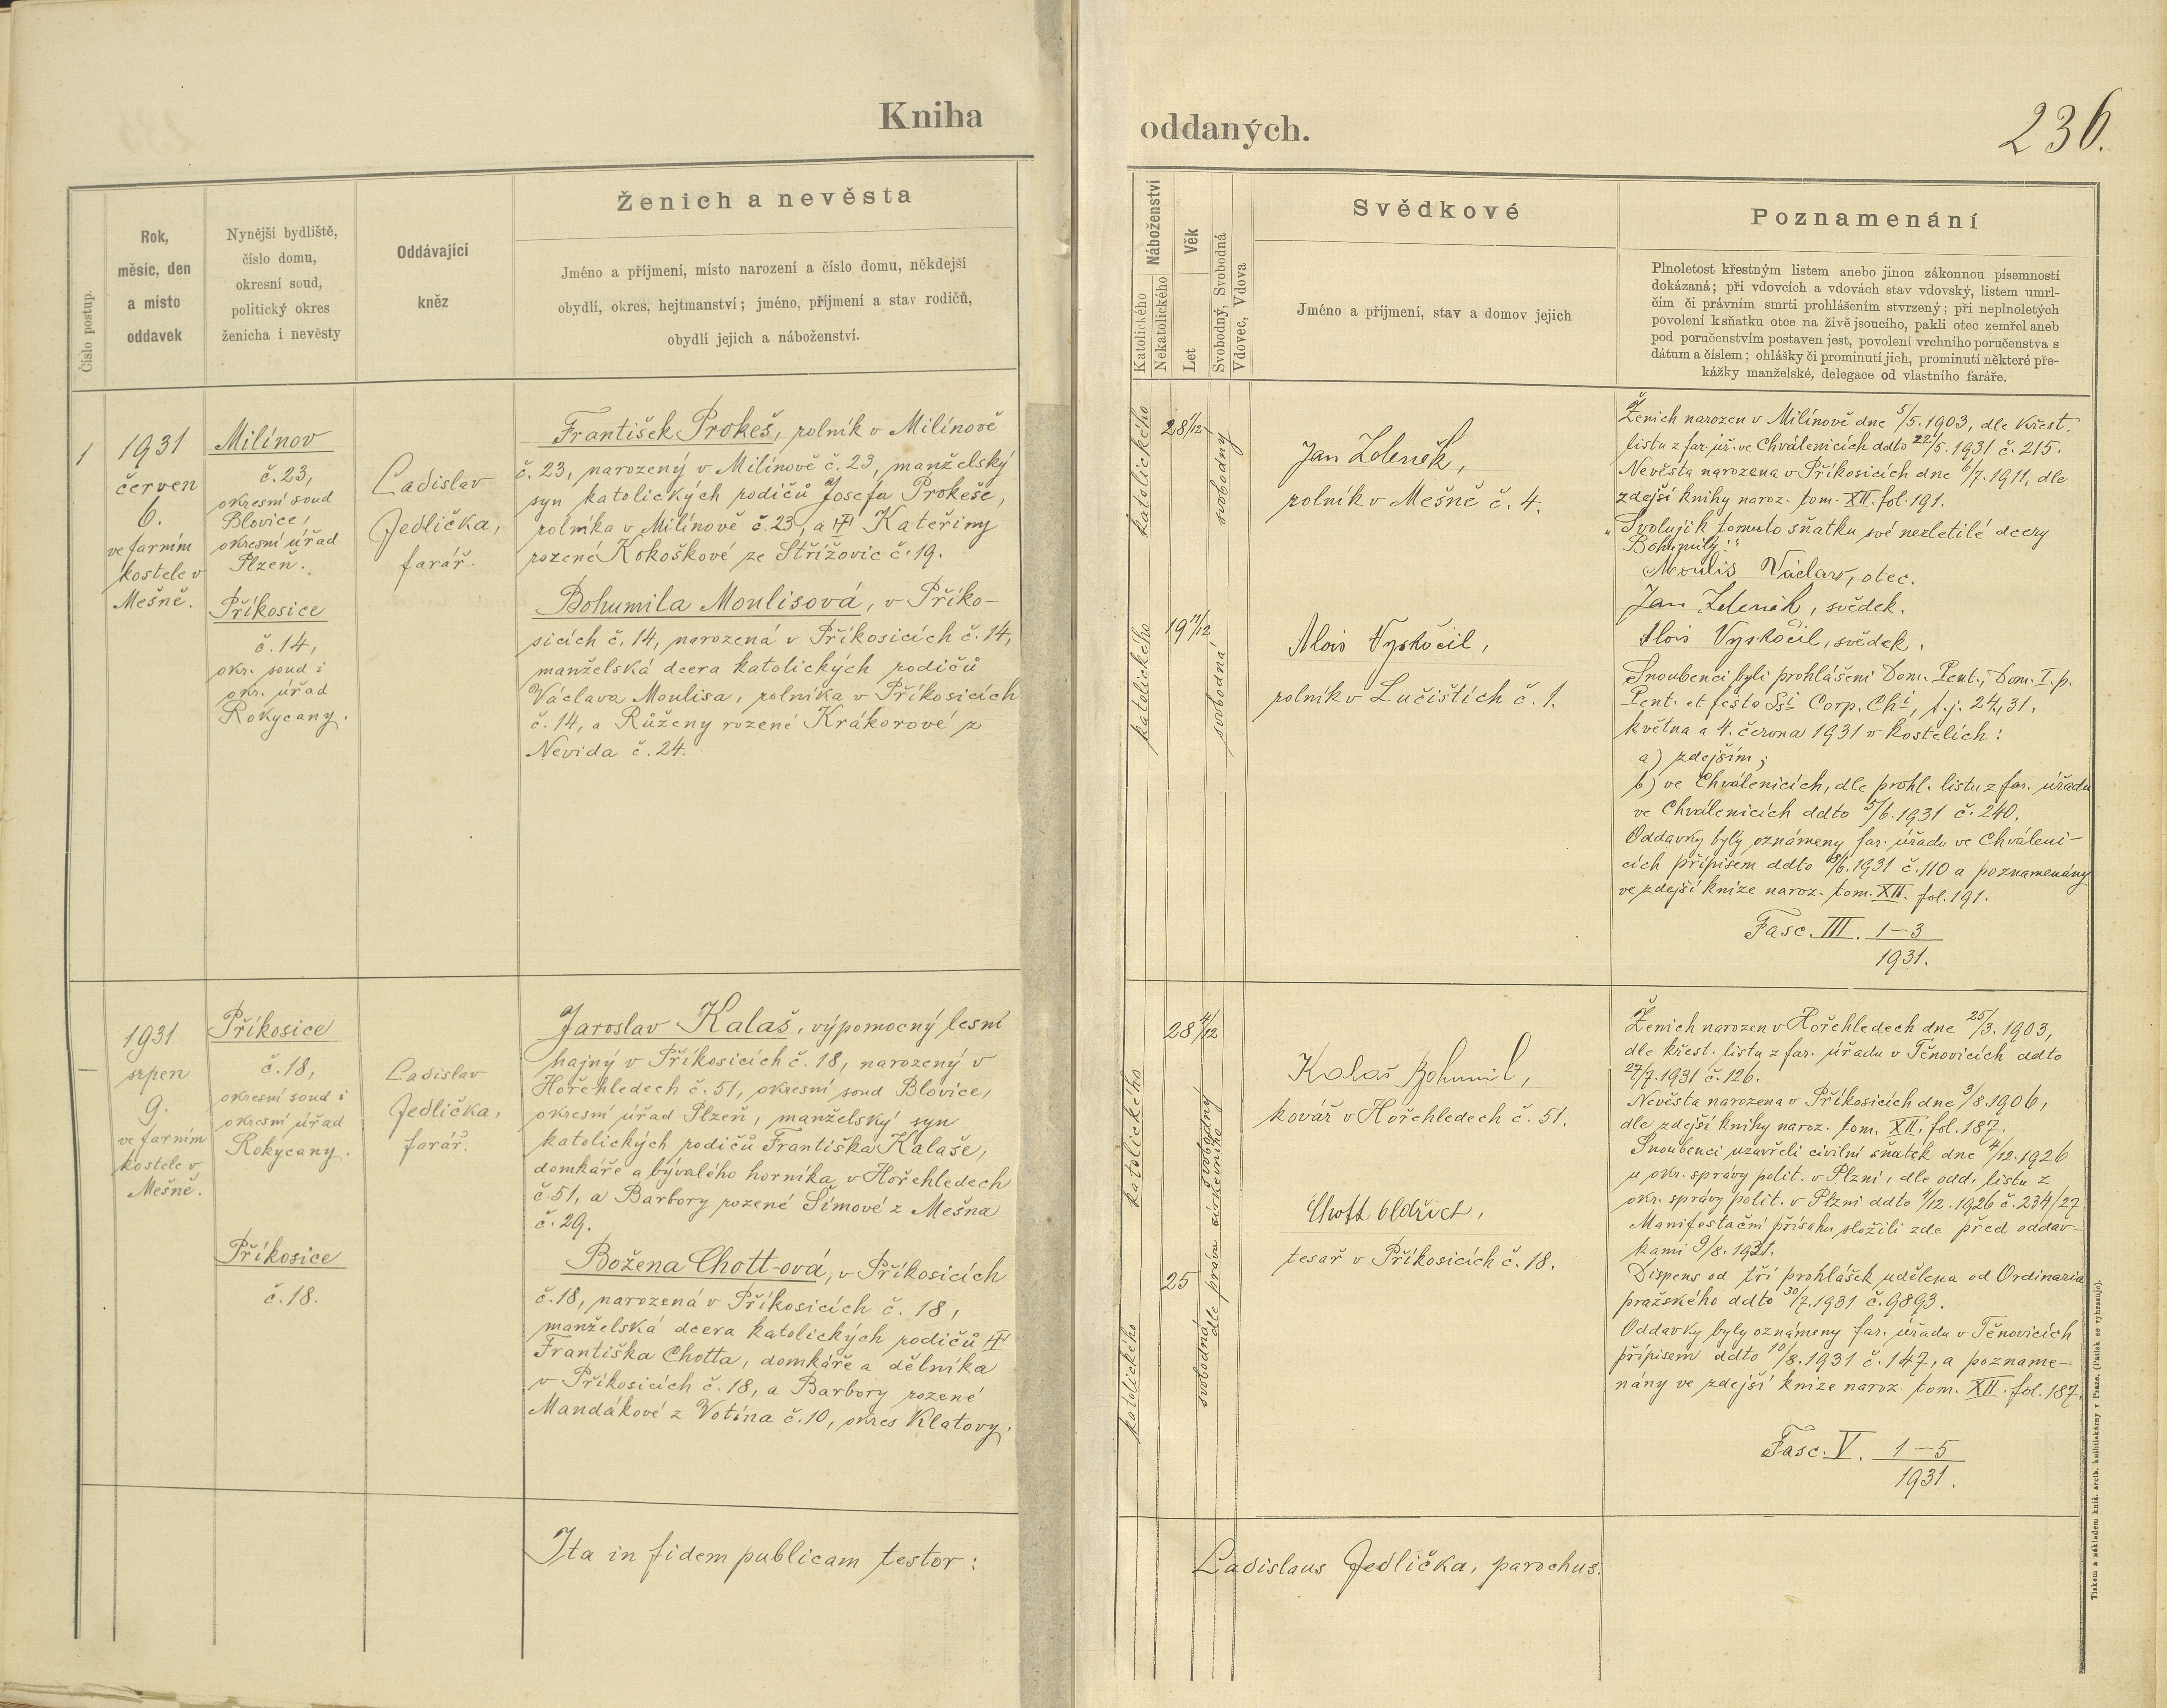 Kniha
Číslo postup.
Rok,
měsíc, den
a místo
oddavek
Nynější bydliště,
číslo domu,
okresní soud,
politický okres
ženicha i nevěsty
Oddávající
kněz
Ženich a nevěsta
Jméno a příjmení, místo narození a číslo domu, někdejší
obydlí, okres, hejtmanství; jméno, příjmení a stav rodičů,
obydlí jejich a náboženství.
1
1931
červen
6.
ve farním
kostele v
Mešně.
Milínov
č. 23,
okresní soud
Blovice,
okresní úřad
Plzeň.
Příkosice
č. 14,
okr. soud i
okr. úřad
Rokycany.
Ladislav
Jedlička,
farář.
František Prokeš, rolník v Milínově
č. 23, narozený v Milínově č. 23, manželský
syn katolických rodičů Josefa Prokeše,
rolníka v Milínově č. 23, a Kateřiny
rozené Kokoškové ze Střížovic č. 19.
Bohumila Moulisová, v Příko-
sicích č. 14, narozená v Příkosicích č. 14,
manželská dcera katolických rodičů
Václava Moulisa, rolníka v Příkosicích
č. 14, a Růženy rozené Krákorové z
Nevida č. 24.
—
1931
srpen
9.
ve farním
kostele v
Mešně.
Příkosice
č. 18,
okresní soud i
okresní úřad
Rokycany.
Příkosice
č. 18.
Ladislav
Jedlička,
farář.
Jaroslav Kalaš, výpomocný lesní
hajný v Příkosicích č. 18, narozený v
Hořehledech č. 51, okresní soud Blovice,
okresní úřad Plzeň, manželský syn
katolických rodičů Františka Kalaše,
domkáře a bývalého horníka v Hořehledech
č. 51, a Barbory rozené Šimové z Mešna
č. 29.
Božena Chott-ová, v Příkosicích
č. 18, narozená v Příkosicích č. 18,
manželská dcera katolických rodičů
Františka Chotta, domkáře a dělníka
v Příkosicích č. 18, a Barbory rozené
Mandákové z Votína č. 10, okres Klatovy.
Ita in fidem publicam testor:
oddaných.
236.
Náboženství
Katolického
Nekatolického
Věk
Let
Svobodný, Svobodná
Vdovec, Vdova
Svědkové
Jméno a příjmení, stav a domov jejich
Poznamenání
Plnoletost křestným listem anebo jinou zákonnou písemností
dokázaná; při vdovcích a vdovách stav vdovský, listem umrl-
čím či právním smrti prohlášením stvrzený; při neplnoletých
povolení k sňatku otce na živě jsoucího, pakli otec zemřel aneb
pod poručenstvím postaven jest, povolení vrchního poručenstva s
dátum a číslem; ohlášky či prominutí jich, prominutí některé pře-
kážky manželské, delegace od vlastního faráře.
katolického
28 1/12
svobodný
Jan Zdeněk,
rolník v Mešně č. 4.
katolického
19 11/12
svobodná
Alois Vyskočil,
rolník v Lučištích č. 1.
Ženich narozen v Milínově dne 5/5. 1903, dle křest.
listu z far. úř. ve Chválenicích ddto 22/5. 1931 č. 215.
Nevěsta narozena v Příkosicích dne 6/7. 1911, dle
zdejší knihy naroz. tom. XII. fol. 191.
"Svoluji k tomuto sňatku své nezletilé dcery
Bohumily:"
Moulis Václav, otec.
Jan Zdeněk, svědek.
Alois Vyskočil, svědek.
Snoubenci byli prohlášeni Dom. Pent., Dom. I. p.
Pent. et festo Ssi Corp. Chi, t. j. 24., 31.
května a 4. června 1931 v kostelích:
a) zdejším;
b) ve Chválenicích, dle prohl. listu z far. úřadu
ve Chválenicích ddto 5/6. 1931 č. 240.
Oddavky byly oznámeny far. úřadu ve Chváleni-
cích přípisem ddto /6. 1931 č. 110 a poznamenány
ve zdejší knize naroz. tom. XII. fol. 191.
Fasc. III. 1-3
1931.
katolického
28 4/12
svobodný
Kalaš Bohumil,
kovář v Hořehledech č. 51.
katolického
25
svobodná
dle práva církevního
Chott Oldřich,
tesař v Příkosicích č. 18.
Ženich narozen v Hořehledech dne 25/3. 1903,
dle křest. listu z far. úřadu v Těnovicích ddto
27/7. 1931 č. 126.
Nevěsta narozena v Příkosicích dne 3/8. 1906,
dle zdejší knihy naroz. tom. XII. fol. 187.
Snoubenci uzavřeli civilní sňatek dne 4/12. 1926
u okr. správy polit. v Plzni, dle odd. listu z
okr. správy polit. v Plzni ddto 4/12. 1926 č. 234/27
Manifestační přísahu složili zde před oddav-
kami 9/8. 1931.
Dispens od tří prohlášek udělena od Ordinaria
pražského ddto 30/7. 1931 č. 9893.
Oddavky byly oznámeny far. úřadu v Těnovicích
přípisem ddto 10/8. 1931 č. 147, a pozname-
nány ve zdejší knize naroz. tom. XII. fol. 187.
Fasc. V. 1-5
1931.
Ladislaus Jedlička, parochus.
Tiskem a nákladem kníž. arcib. knihtiskárny v Praze. (Patisk se vyhrazuje).